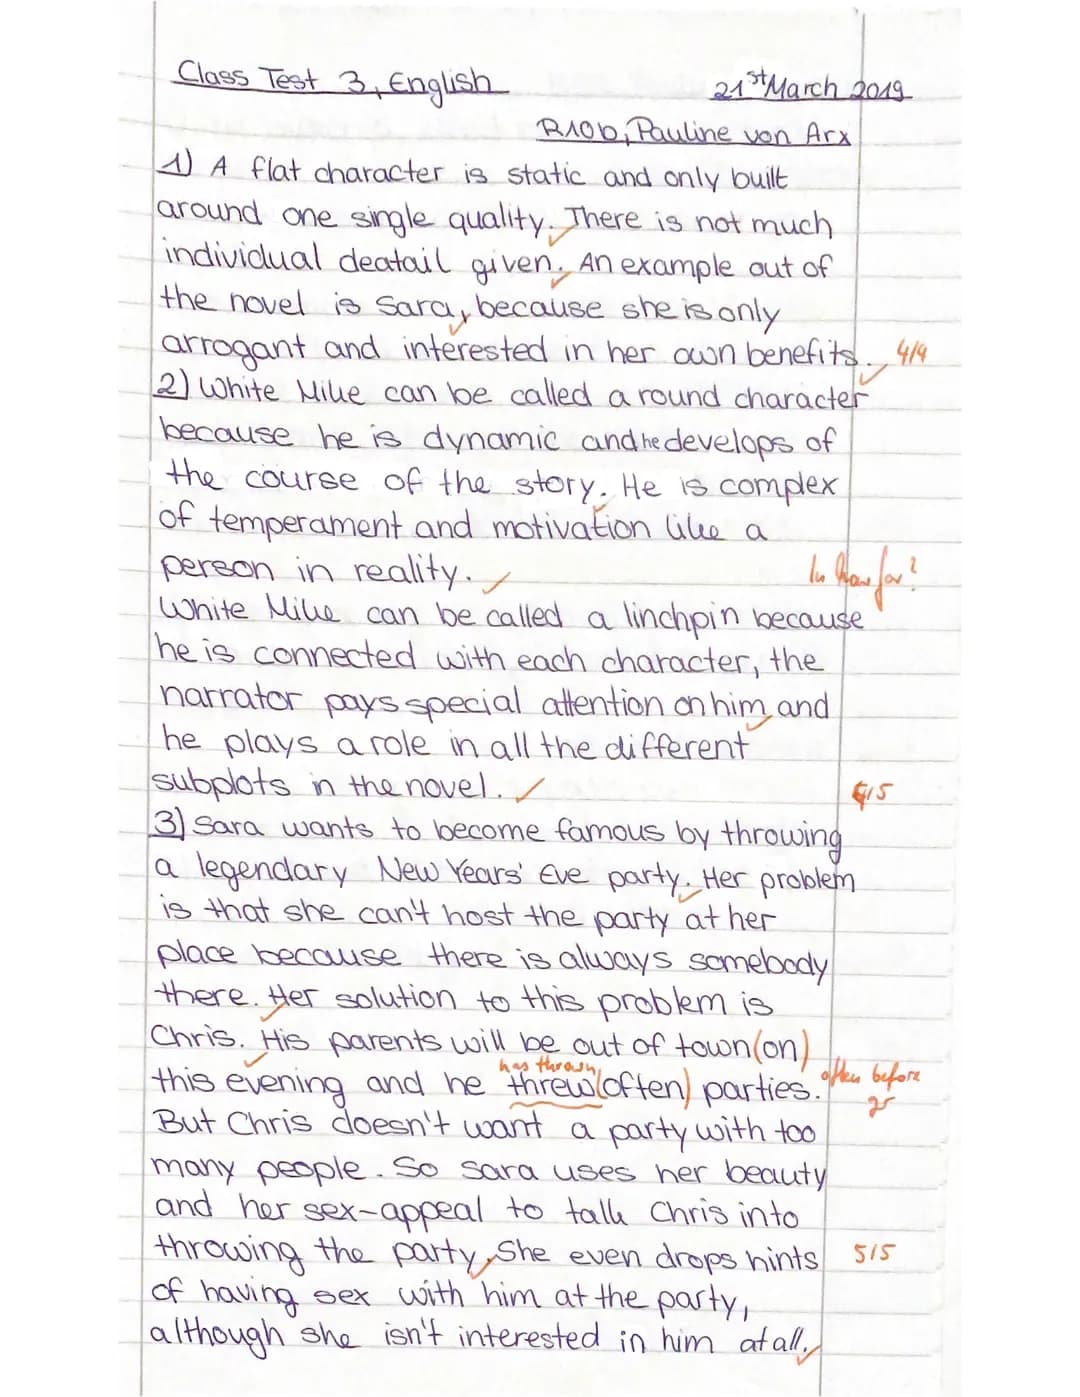 Class Test 3, English 21st March 2019
R10b, Pauline von Arx
1) A flat character is static and only built
around one single quality. There is not much
individual deatail given. An example out of
the novel is Sara, because she is only
arrogant and interested in her own benefits. 4/4
2) White Mike can be called a round character
because he is dynamic and he develops of
the course of the story. He is complex
of temperament and motivation like a
person in reality. In how far?
White Mike can be called a linchpin because
he is connected with each character, the
narrator pays special attention on him and
he plays a role in all the different
subplots in the novel. /5
3) Sara wants to become famous by throwing
a legendary New Years' Eve party. Her problem
is that she can't host the party at her
place because there is always somebody
there. Her solution to this problem is
Chris. His parents will be out of town (on)
has thrown
this evening and he threw (often) parties. often before
But Chris doesn't want a party with too
many people. So Sara uses her beauty
and her sex-appeal to talk Chris into
throwing the party, She even drops hints 5/5
of having sex with him at the party,
although she isn't interested in him at all.